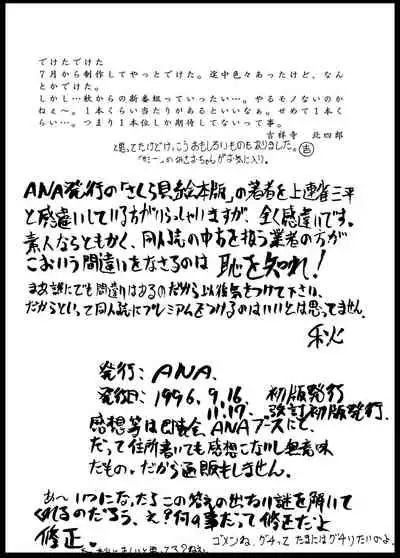 でけたでけた
7月から制作してやっとでけた。途中色々あったけど、なん
とかでけた。
しかし…秋からの新番組っていったい…。やるモノないのか
ねぇ～。1本くらい当たりがあるといいなぁ。せめて1本く
らい…。つまり1本位しか期待してないって事。
吉祥寺 北四郎
と思ってたけど、けっこうおもしろいものもありました。吉
のあさきちゃんがお気に入り。
ANA発行の「さくら貝絵本版」の著者を上連雀三平
と感違いしている方がいらっしゃいますが、全く感違いです。
素人ならともかく、同人誌の中古を扱う業者の方が
こおいう間違いをなさるのは 恥を知れ!
まあ誰にでも間違いはあるのだから以後気をつけて下さい。
だからといって同人誌にプレミアムをつけるのはいいとは思ってません。
秋
発行:ANA.
発行日:1996. 9.16. 初版発行
11.17. 改訂初版発行.
感想等は即売会、ANAブースにて。
だって住所書いても感想こないし無意味
だもの。だから通販もしません。
あ～ いつになったらこの答えの出ない謎を解いて
くれるのだろう、え?何の事だって 修正だよ
修正。
ゴメンね、グチって たまにはグチりたいのよ